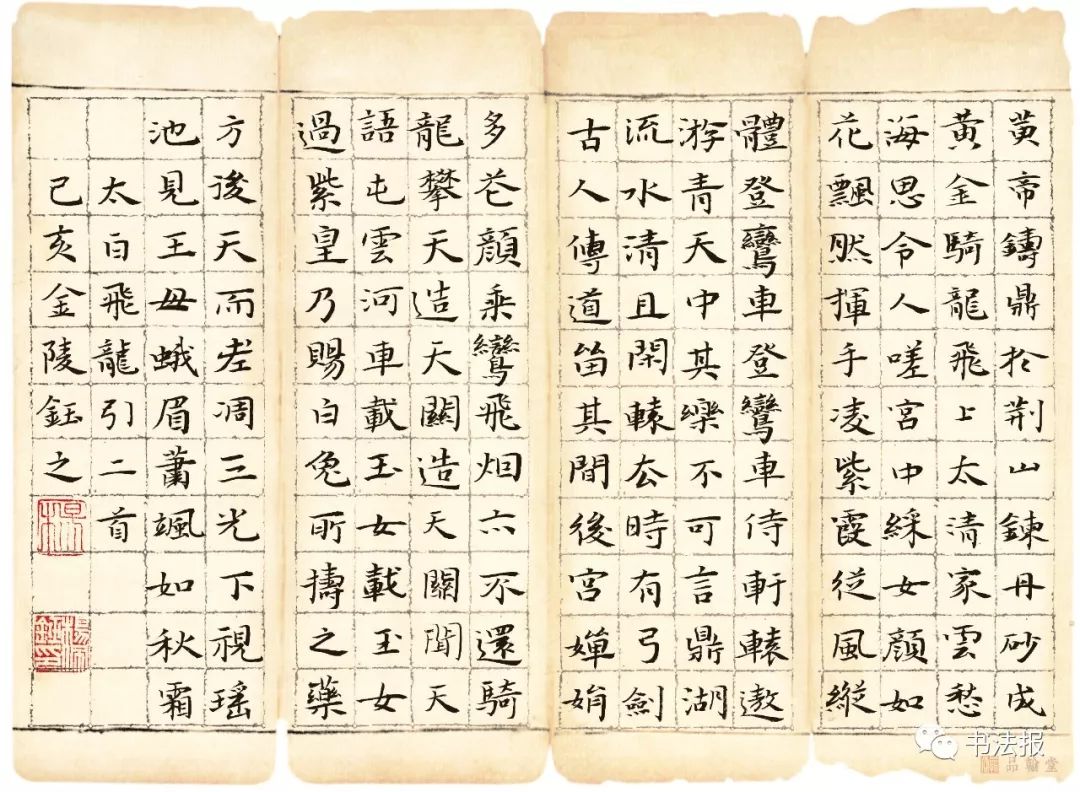 黄帝鑄鼎於荆山鍊丹砂成
黄金騎龍飛上太清家雲愁
海思令人嗟宮中綵女顔如
花飄然揮手凌紫霞從風縱
體登鸞車登鸞車侍軒轅遨
游青天中其樂不可言鼎湖
流水清且閑轅去時有弓劍
古人傳道留其間後宮嬋娟
多花顔乘鸞飛烟六不還騎
龍攀天造天關造天關聞天
語屯雲河車載玉女載玉女
過紫皇乃賜白兔所擣之藥
方後天而老凋三光下視瑶
池見王母蛾眉蕭颯如秋霜
太白飛龍引二首
己亥金陵鈺之
书法报
品翰堂